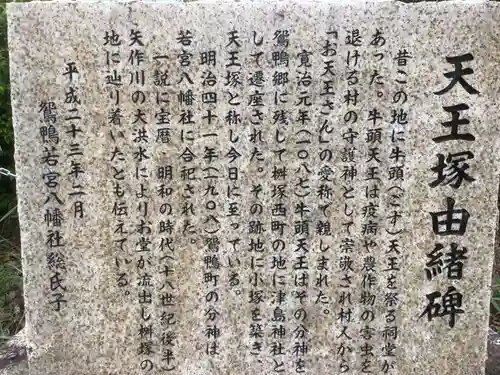 天王塚由緒碑
昔この地に牛頭(ごず)天王を祭る祠堂が
あった。牛頭天王は疫病や農作物の害虫を
退ける村の守護神として崇敬され村人から
「お天王さん」の愛称で親しまれた。
寛治元年(一〇八七)牛頭天王はその分神を
鴛鴨郷に残して桝塚西町の地に津島神社と
して遷座された。その跡地に小塚を築き、
天王塚と称し今日に至っている。
明治四十一年(一九〇八)鴛鴨町の分神は
若宮八幡社に合祀された。
一説に宝暦、明和の時代(十八世紀後半)
矢作川の大洪水によりお堂が流出し桝塚の
地に辿り着いたとも伝えている。
平成二十三年二月
鴛鴨若宮八幡社総氏子